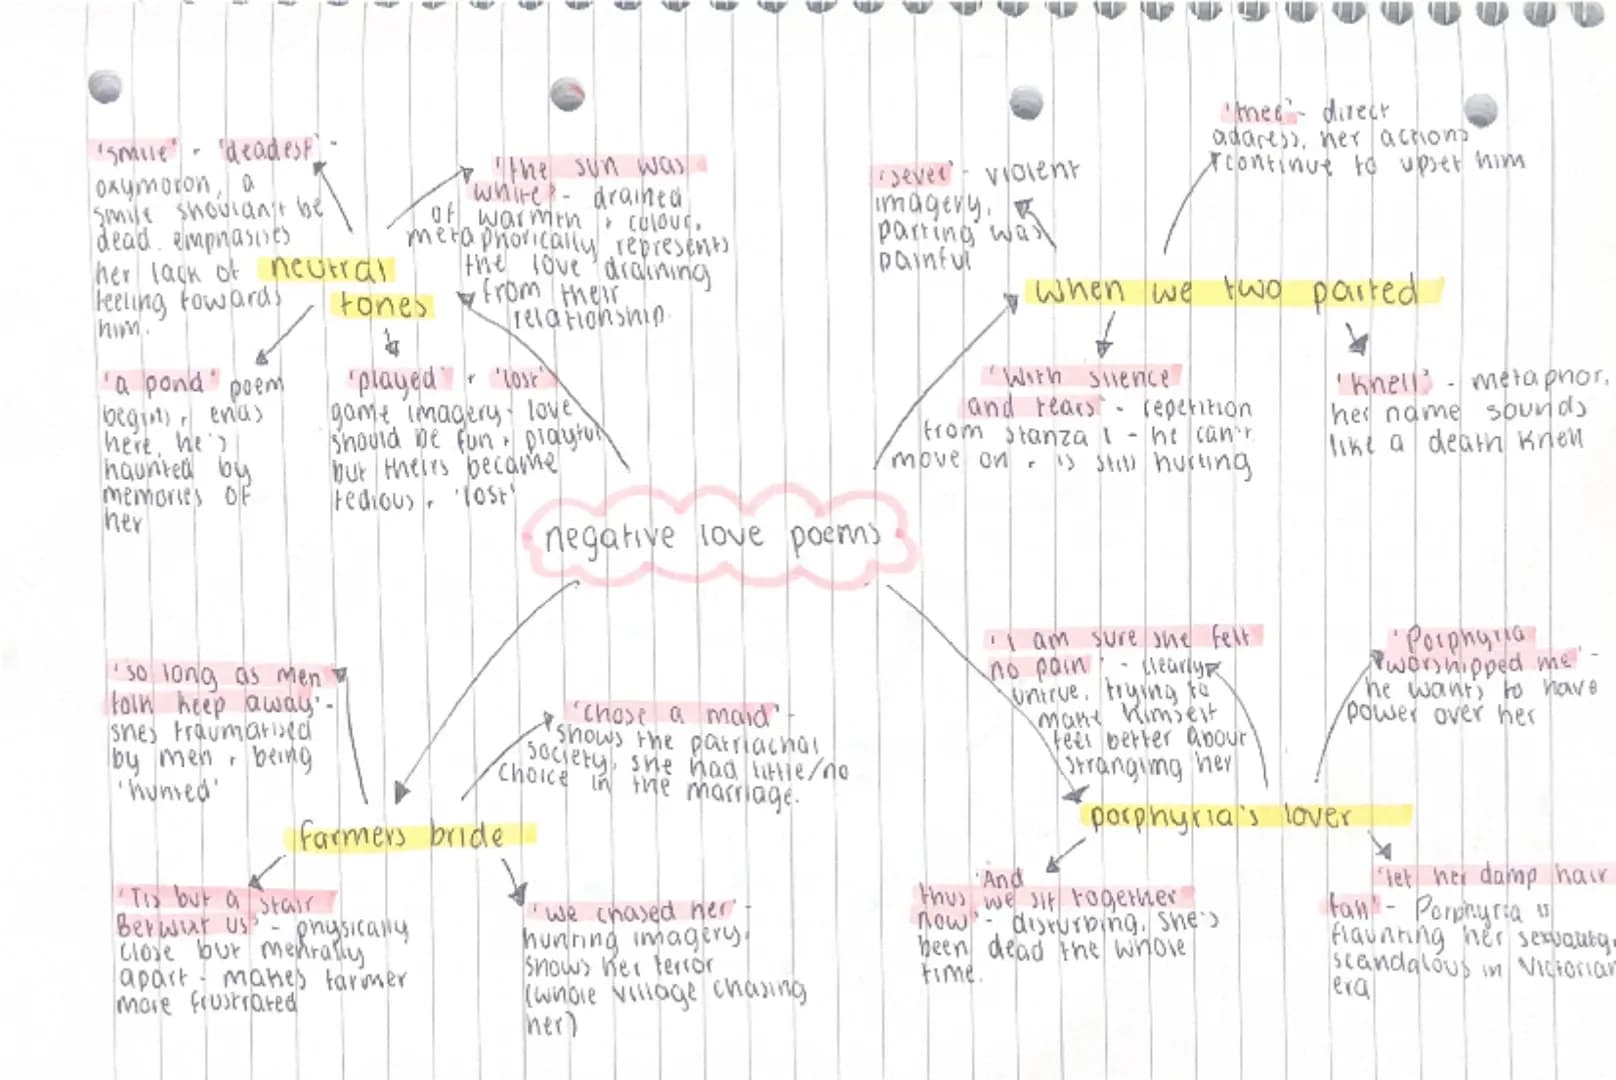 'smile' + 'deadest' -
oxymoron, a
smile shouldn't be
dead. emphasises
her lack of
feeling towards
him.
'the sun was
white' - drained
of warmth + colour,
metaphorically represents
the love draining
from their
relationship.
neutral
tones
'a pond' poem
begins + ends
here, he's
haunted by
memories of
her
'played' + 'lost'
game imagery - love
should be fun + playful
but theirs became
tedious + 'lost'
'sever' - violent
imagery,
parting was
painful
'thee' - direct
address, her actions
continue to upset him
when we two parted
'With silence
and tears' - repetition
from stanza 1 - he can't
move on + is still hurting
'knell' - metaphor,
her name sounds
like a death knell
negative love poems
'so long as men
folk keep away' -
shes traumatised
by men + being
'hunted'
'chose a maid' -
shows the patriachal
society, she had little/no
choice in the marriage.
farmers bride
'Tis but a stair
Betwixt us' - physically
close but mentally
apart - makes farmer
more frustrated
'we chased her' -
hunting imagery,
shows her terror
(whole village chasing
her)
'I am sure she felt
no pain' - clearly
untrue, trying to
make himself
feel better about
strangling her
'Porphyria
worshipped me' -
he wants to have
power over her
porphyria's lover
'And
thus we sit together
now' - disturbing, she's
been dead the whole
time.
'let her damp hair
fall' - Porphyria is
flaunting her sexuality,
scandalous in Victorian
era